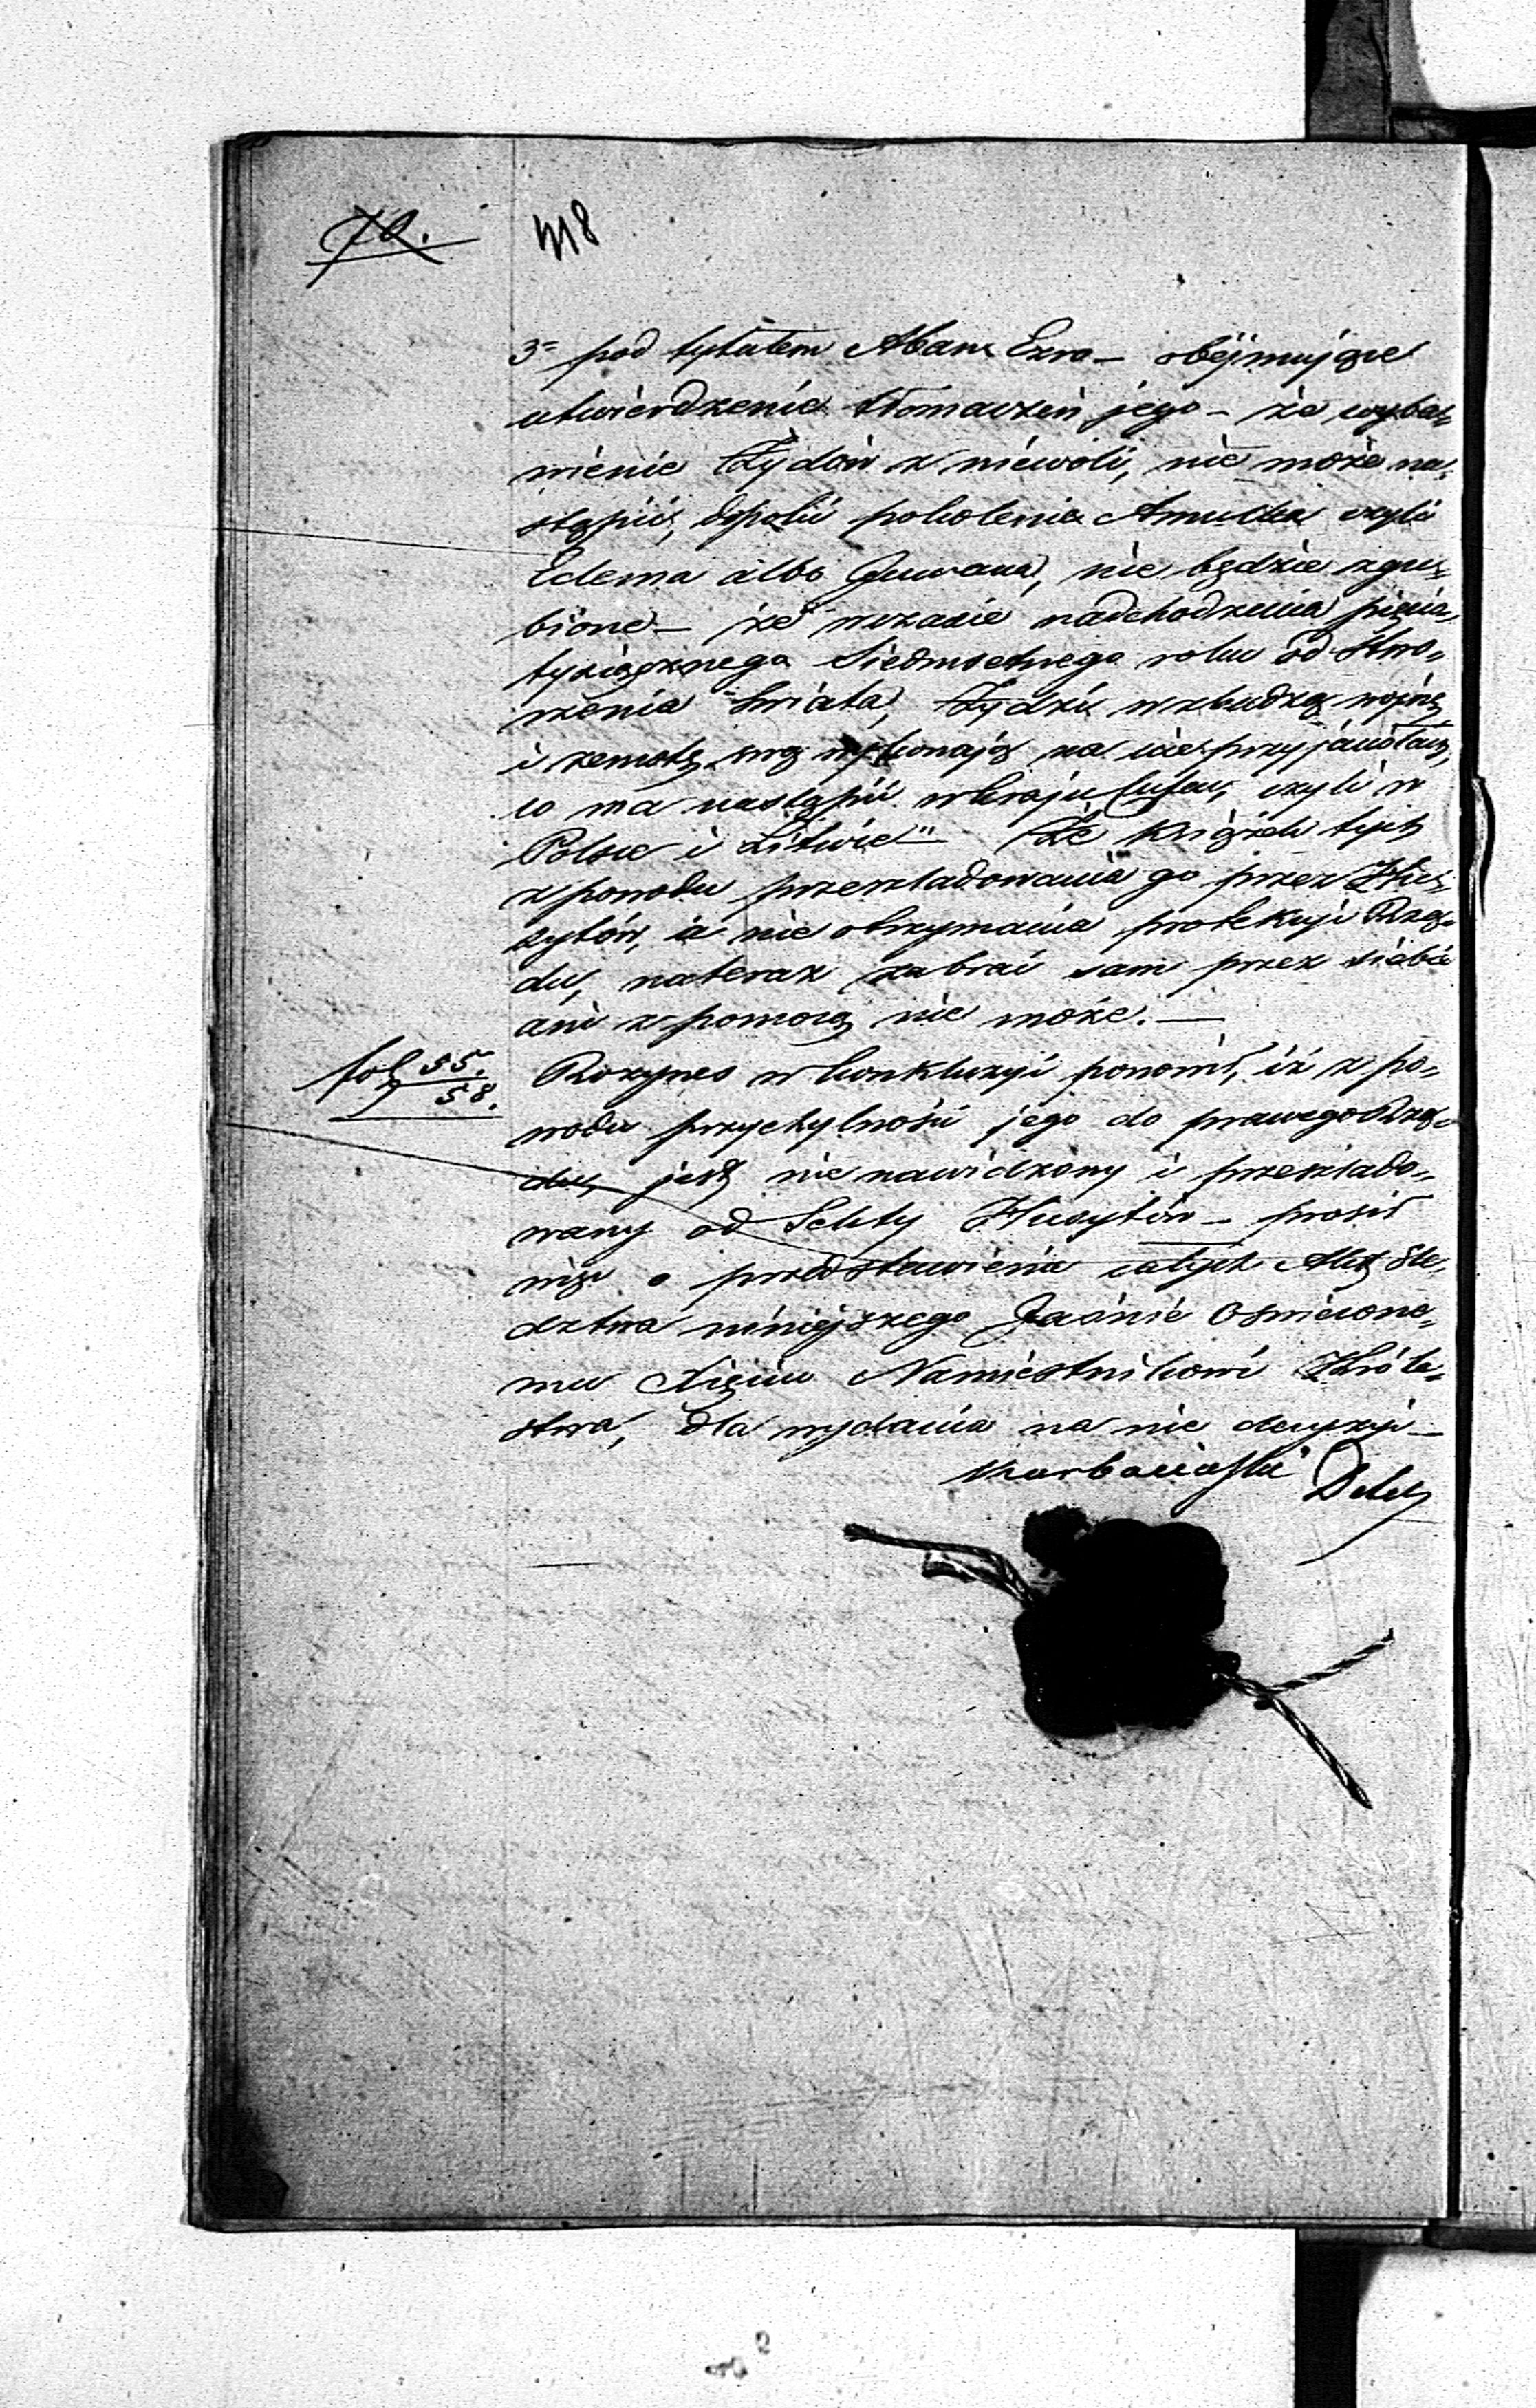 70.
418
3= pod tytułem Aban Ezra — obejmujące
utwierdzenie tłomaczeń jego — że wyba-
wienie Żydów z niewoli, nie może na-
stąpić, dopóki pokolenie Amulka czyli
Edema albo, nie będzie zgu-
bione — że w czasie nadchodzenia pięcia-
tysiącznego Siedmsetnego roku od stwo-
rzenia Świata, Żydzi wzbudzą wojnę
i zemstę swą wykonają na nieprzyjaciołach,
co ma nastąpić w kraju czyli w
Polsce i Litwie" — Że książek tych
z powodu prześladowania go przez Hus-
sytów, i nie otrzymania protekcyi Rzą-
du, nateraz zabrać sam przez siebie
ani z pomocą nie może. —
fol 55.
58.
Rozynes w konkluzyi ponowił, iż z po-
wodu przychylności jego do prawego Rzą-
du, jest nienawidzony i prześlado-
wany od Sekty Husytów — prosił
więc o przedstawienie całych Akt Śle-
dztwa niniejszego Jaśnie Oświecone-
mu Xięciu Namiestnikowi Króle-
stwa, dla wydania na nie decyzyi —